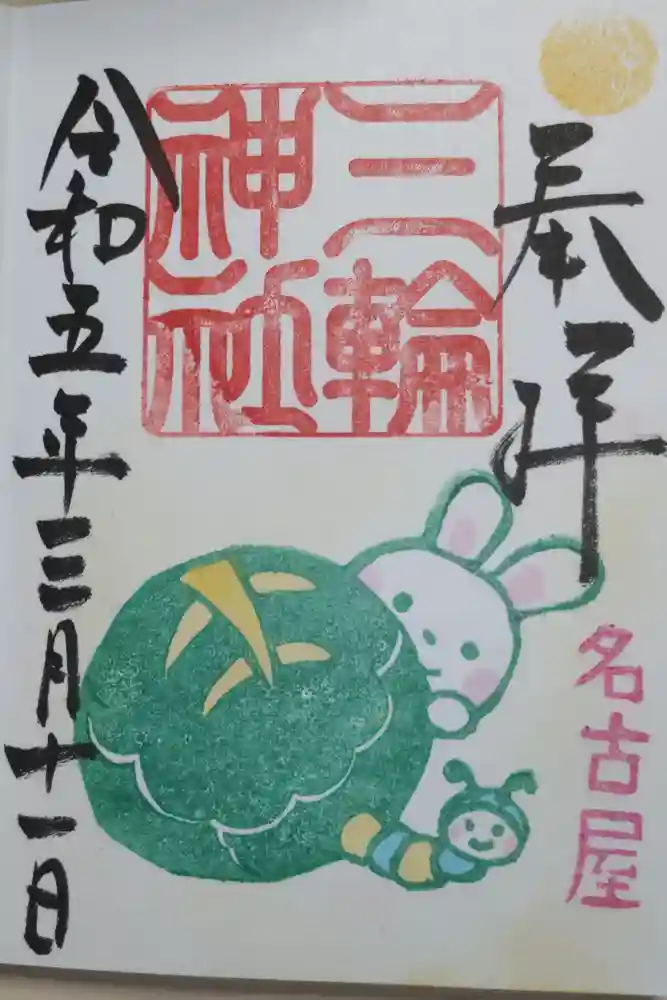 奉拝
名古屋
三輪
神社
令和五年三月十一日